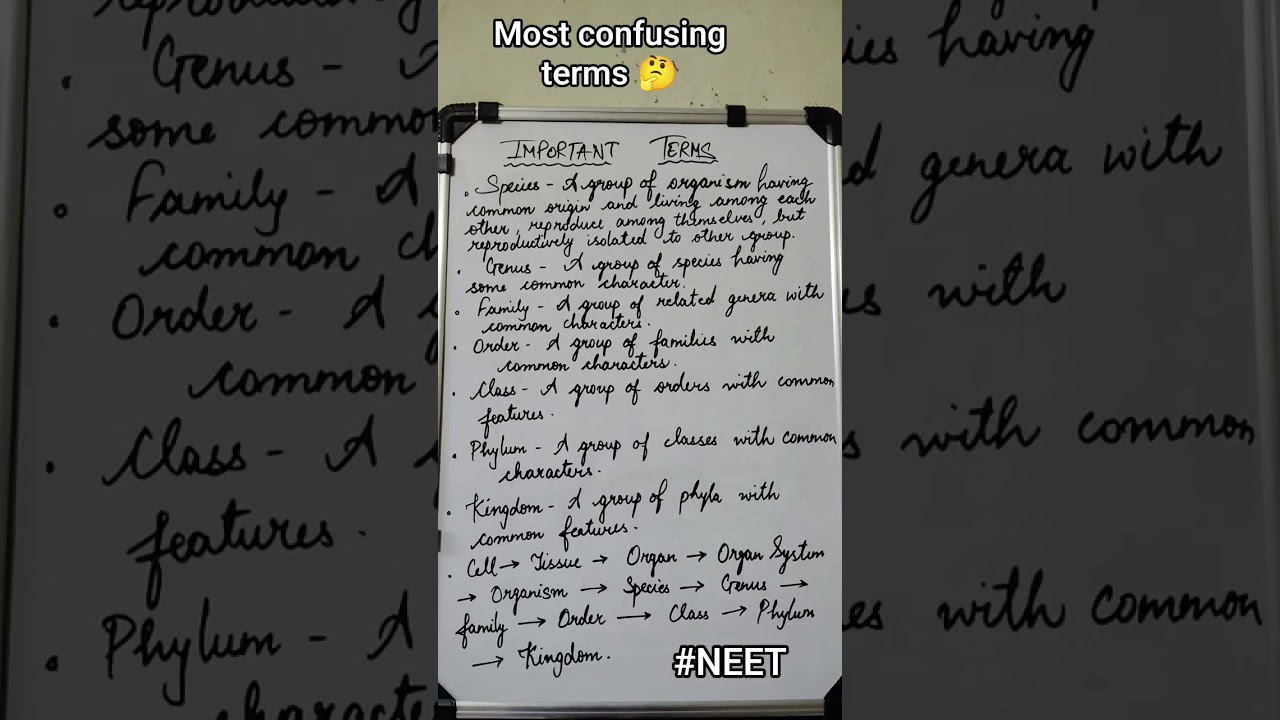 Most confusing
terms 🤔
IMPORTANT TERMS
• Species - A group of organism having
common origin and living among each
other, reproduce among themselves, but
reproductively isolated to other group.
• Genus - A group of species having
some common character.
• Family - A group of related genera with
common characters.
• Order - A group of families with
common characters.
• Class - A group of orders with common
features.
• Phylum - A group of classes with common
characters.
• Kingdom - A group of phyla with
common features.
• Cell → Tissue → Organ → Organ System
→ Organism → Species → Genus →
family → Order → Class → Phylum
→ Kingdom.
#NEET